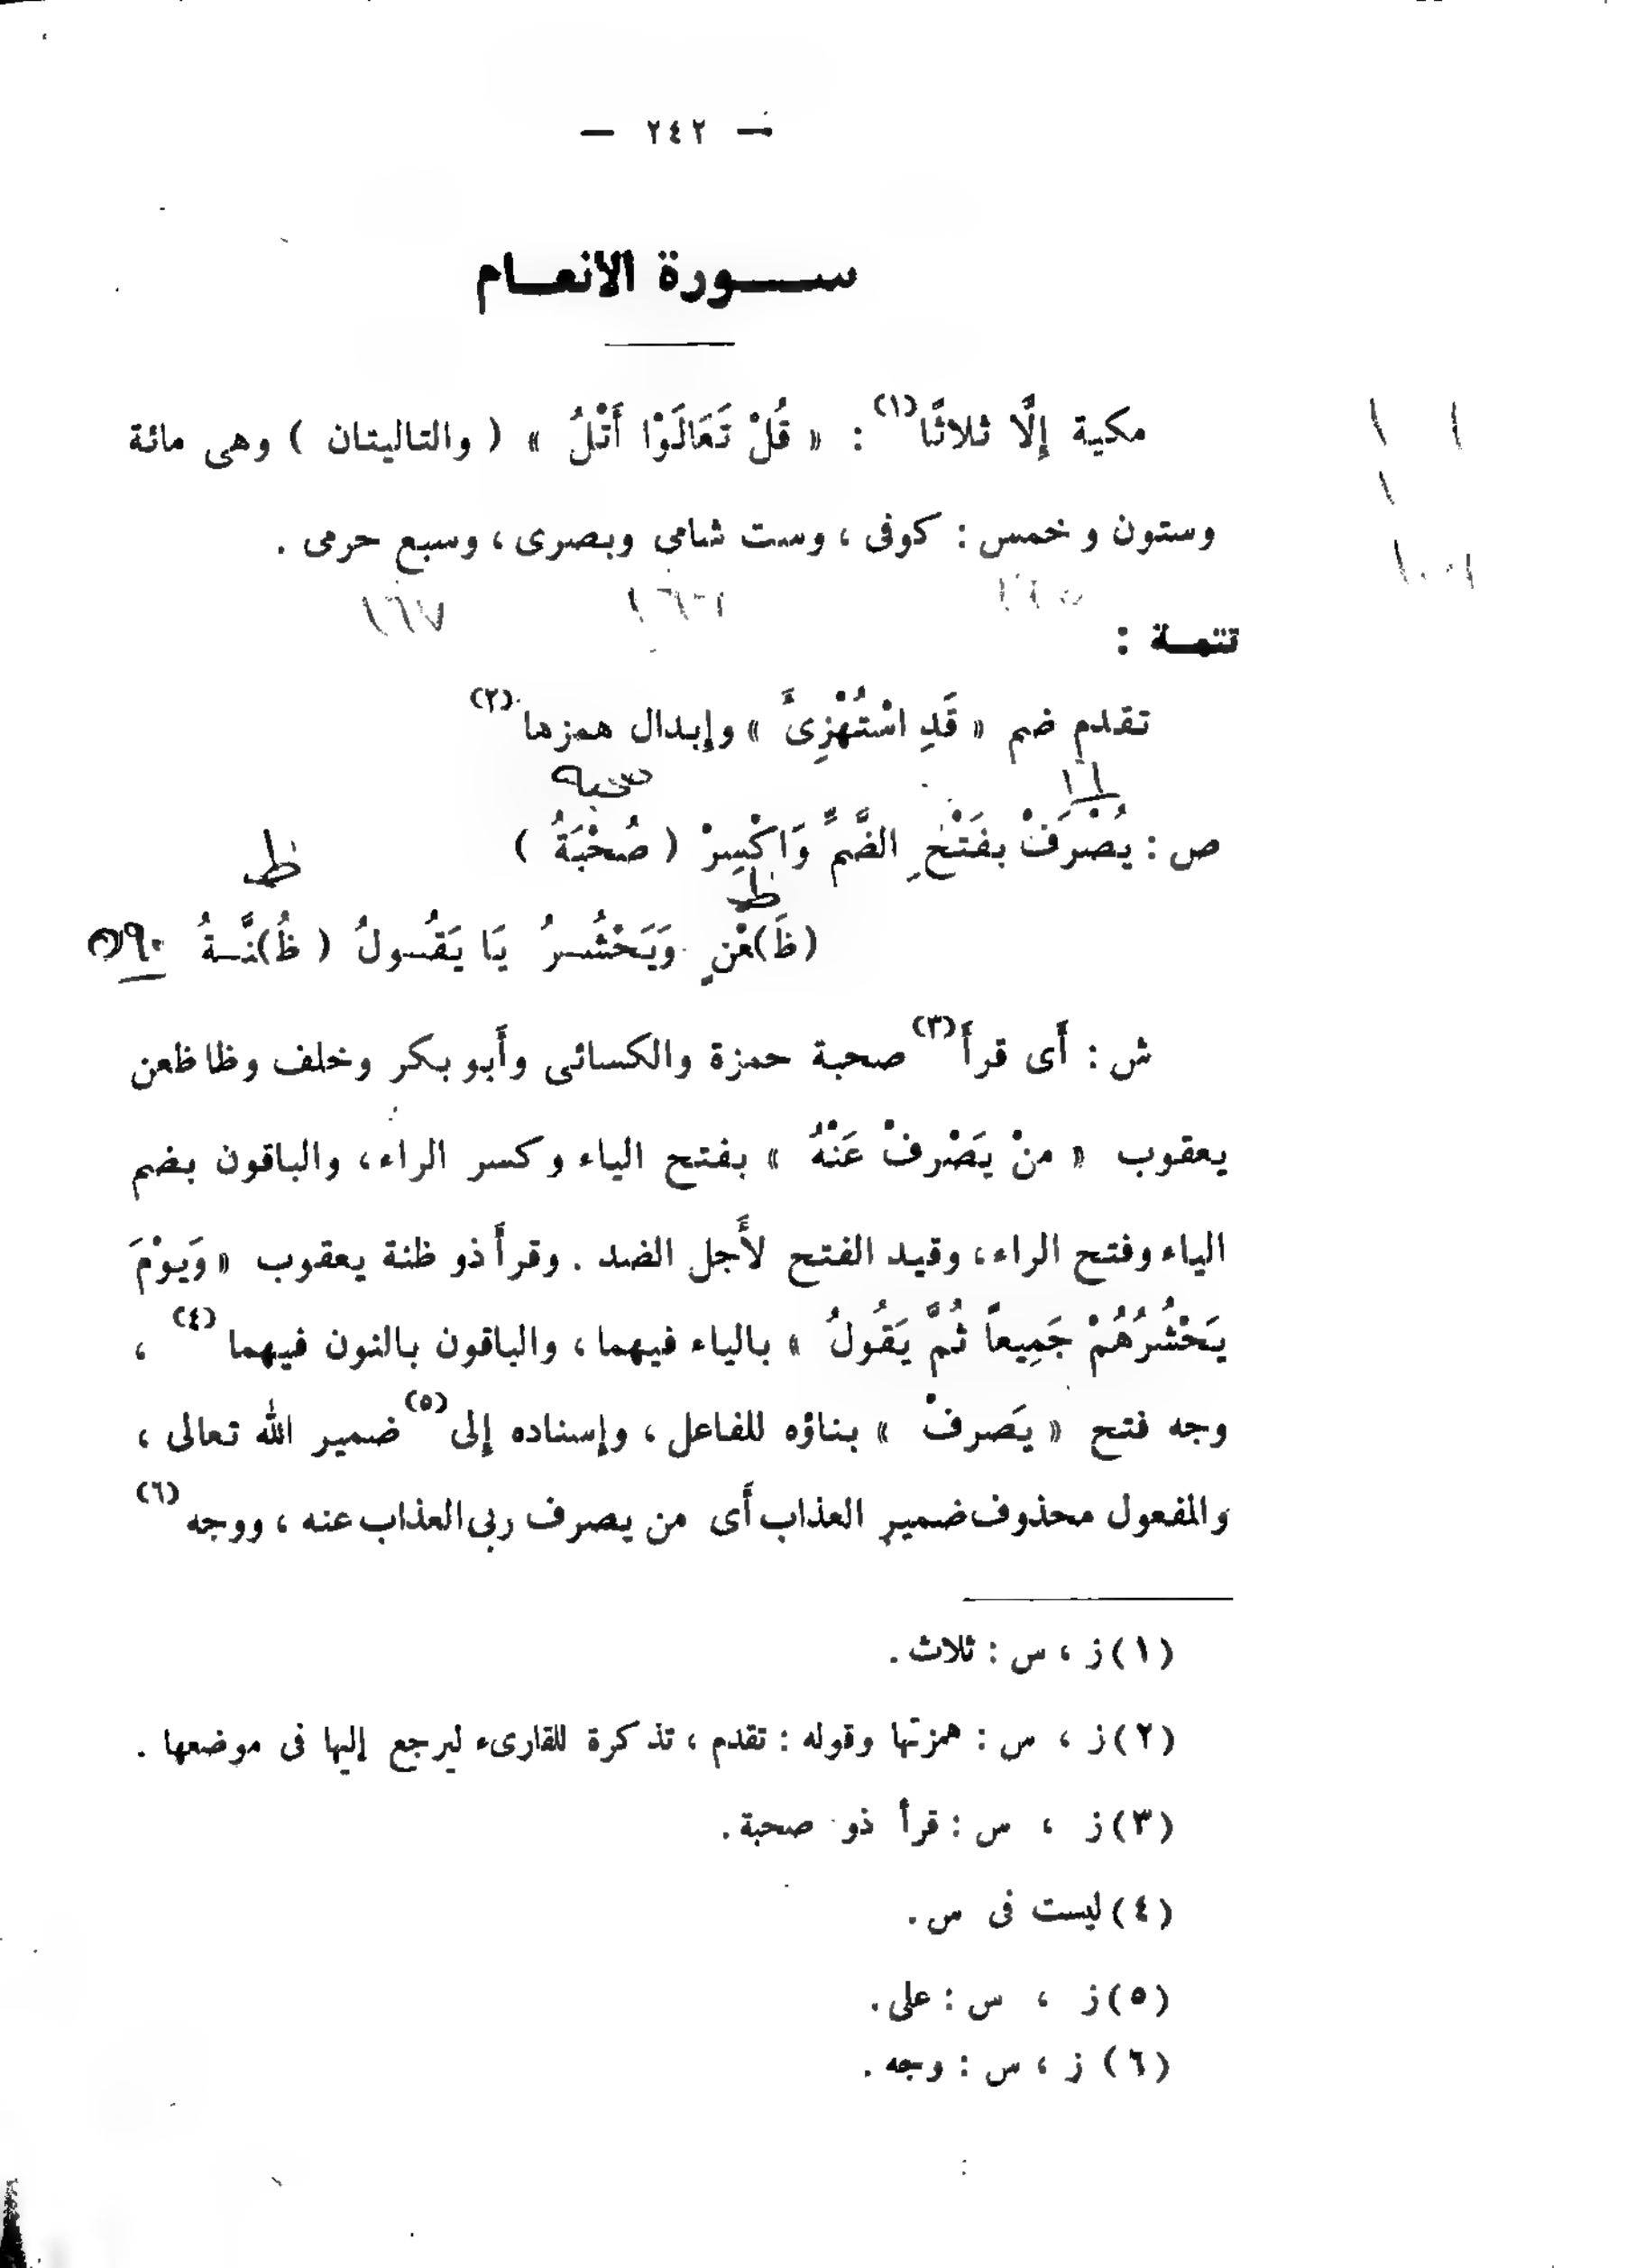 — ٢٤٢ —
ســـورة الانعــام
مكية إِلَّا ثلاثًا(١) : « قُلْ تَعَالَوْا أَتْلُ » ( والتاليتان ) وهى مائة
وستون و خمس : كوفى ، وست شامى وبصرى ، وسبع حرمى .
١٦٥ ١٦٦ ١٦٧
تتمــة :
تقدم ضم « قَدِ اسْتُهْزِئَ » وإبدال همزها(٢)
١٦ صحبه
ص : يُصْرَفْ بِفَتْحِ الضَّمِّ وَاكْسِرْ ( صُحْبَةُ )
ظ ظ
(ظَ)عْنٍ وَيَحْشُــرُ يَا يَقُــولُ ( ظُ)نَّــةُ ٥٩٠
ش : أَى قرأَ(٣) صحبة حمزة والكسائى وأَبو بكر وخلف وظا ظعن
يعقوب « منْ يَصْرفْ عَنْهُ » بفتح الياء وكسر الراء، والباقون بضم
الياء وفتح الراء، وقيد الفتح لأَجل الضد . وقرأَ ذو ظنة يعقوب « وَيَوْمَ
يَحْشُرُهُمْ جَمِيعاً ثُمَّ يَقُولُ » بالياء فيهما ، والباقون بالنون فيهما(٤) ،
وجه فتح « يَصرفْ » بناؤه للفاعل ، وإسناده إلى(٥) ضمير الله تعالى ،
والمفعول محذوف ضمير العذاب أَى من يصرف ربى العذاب عنه ، ووجه(٦)
(١) ز ، س : ثلاث .
(٢) ز ، س : همزتها وقوله : تقدم ، تذكرة للقارىء ليرجع إليها فى موضعها .
(٣) ز ، س : قرأ ذو صحبة .
(٤) ليست فى س .
(٥) ز ، س : على .
(٦) ز ، س : وجه .